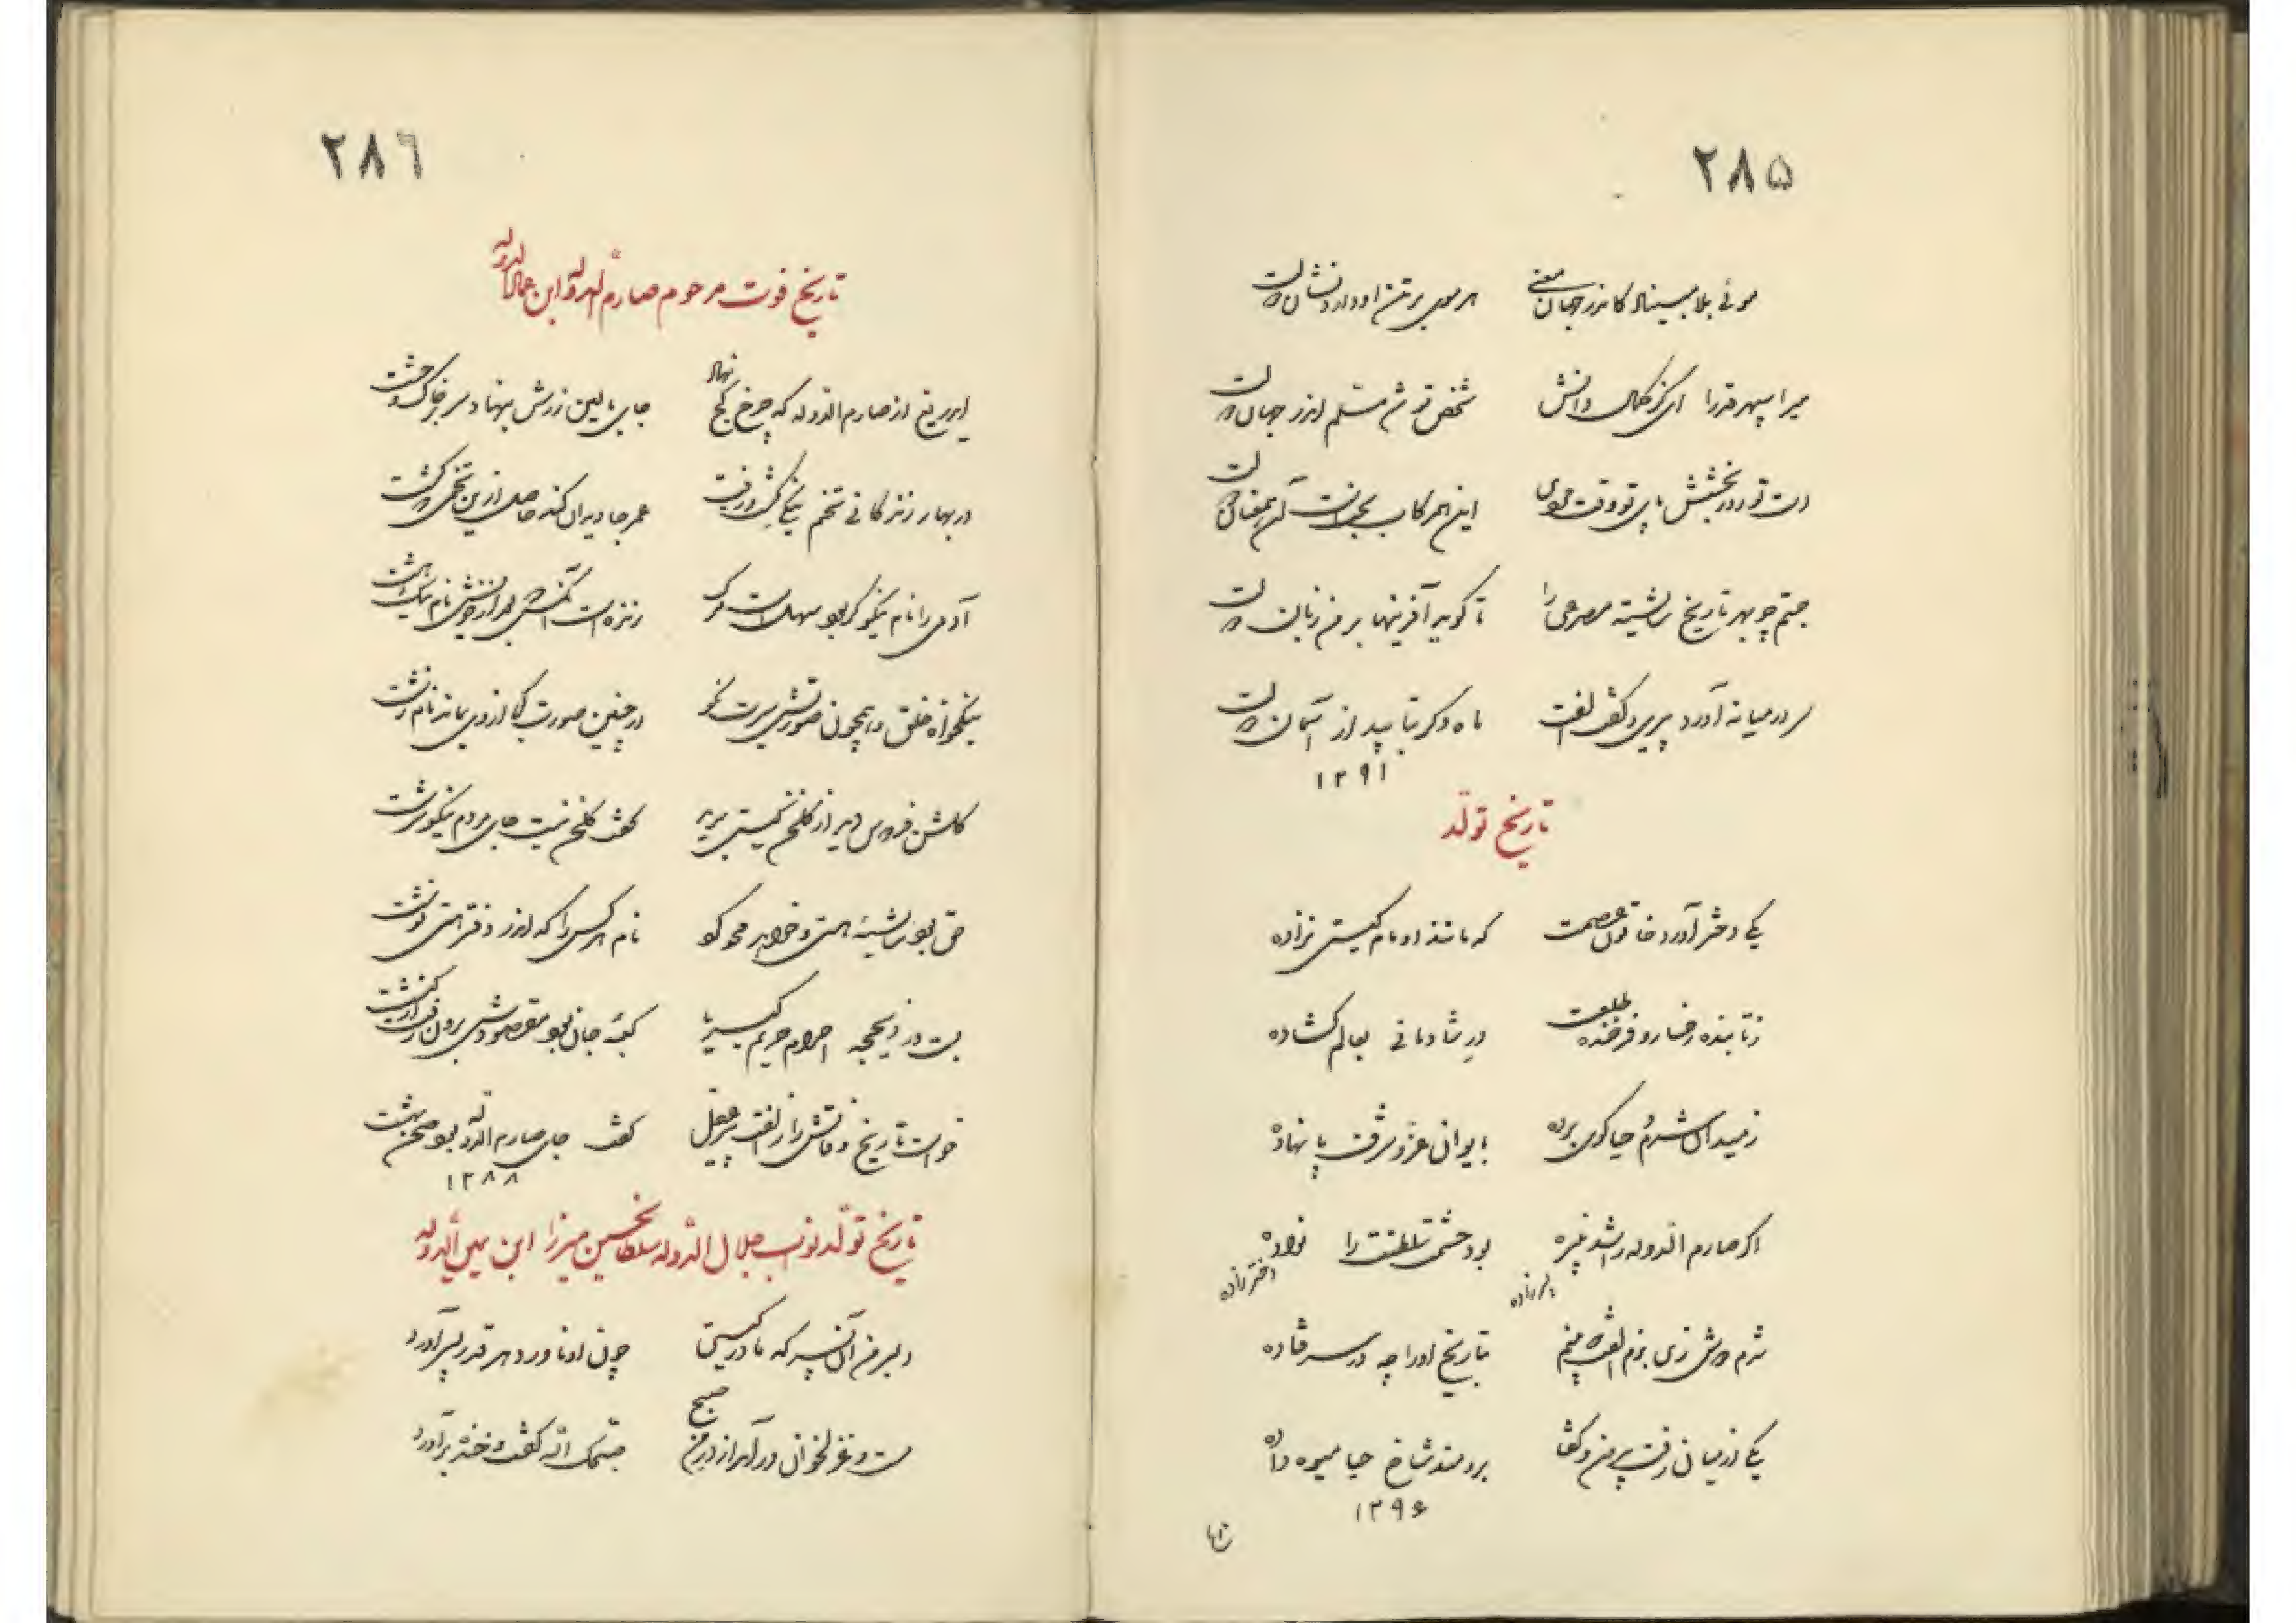 ۲۸۵
موئی بلا ببیناد کاندر جهان معنی هر موی بر تن او دارد نشان دولت
میرا سپهر قدرا ای کز کمال دانش شخص تو شد مسلم اندر جهان دولت
دست تو روز بخشش پای تو وقت این همرکاب آن همعنان دولت
جستم چو بهر تاریخ شایسته مصرعی را تا گوید آفرینها بر من زبان دولت
سر در میانه آورد پیری و گفت ماه دگر تابید از آسمان دولت
۱۲۹۱
تاریخ تولد
یکی دختر آورد خاتون عصمت که مانند او مام گیتی نزاده
ز تابنده رخسار و فرخنده طلعت در شادمانی بعالم گشاده
ز میدان شرم و حیا گوی برده بایوان عز و شرف پا نهاده
اگر صارم الدوله را شد نبیره بود حشمت سلطنت را نواده
دختر زاده
شدم دوش زی بزم الفت که بینم بتاریخ او را چه در سر فتاده
یکی از میان رفت بیرون و گفتا برومند شاخ حیا میوه داده
۱۲۹۶
۲۸۶
تاریخ فوت مرحوم صارم الدوله ابن
ای دریغ از صارم الدوله که چرخ کج نهاد جای بالین زرش بنهاد سر بر خاک و خشت
در بهار زندگانی تخم نیکی کشت و رفت عمر جاویدان کند حاصل ازین تخمی که کشت
آدمی را نام نیکو گر بود سهلست مرگ زنده است آنکش بعد از خویش نام نیک هشت
نیکخواه خلق و همچون صورتش سیرت نکو در چنین صورت کجا از وی بماند نام زشت
گلشن فردوس دید از گلخن گیتی برید گفت گلخن نیست جای مردم نیکو سرشت
می بود شایستهٔ هستی و خواهد محو گو نام هر کس را که اندر دفتر هستی نوشت
بست در ذیحجه احرام حریم کبریا کعبهٔ جان بود مقصودش برون رفت از کنشت
خواست تاریخ وفاتش را ز الفت پیر عقل گفت جای صارم الدوله بود صحن بهشت
۱۲۸۸
تاریخ تولد نواب جلال الدوله سلطان حسین میرزا ابن یمین الدوله
دلبر من آن پسر که مادر گیتی چون او ناورد هر قدر پسر آورد
مست و غزلخوان درآمد از در من صبح تهنیت گفت و خنده برآورد